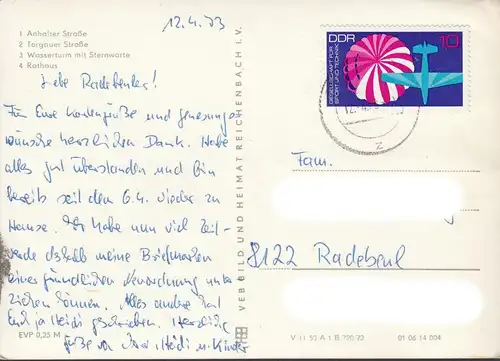 12.4.73
1 Anhalter Straße
2 Torgauer Straße
3 Wasserturm mit Sternwarte
4 Rathaus
Liebe Radebeuler!
Für Eure Kartengrüße und Genesungs
wünsche herzlichen Dank. Habe
alles gut überstanden und bin
bereits seit dem 6.4. wieder zu
Hause. Ich habe nun viel Zeit –
werde deshalb meine Briefmarken
einer gründlichen Neuordnung unter
ziehen können. Alles andere hat
Euch ja Heidi geschrieben. Herzliche
Grüße von Heidi u. Kinder
EVP 0,25 M
VEB BILD UND HEIMAT REICHENBACH I. V.
DDR 10
GESELLSCHAFT FÜR
SPORT UND TECHNIK
Fam.
8122 Radebeul
V 11 52 A 1 B
01 06 14 004